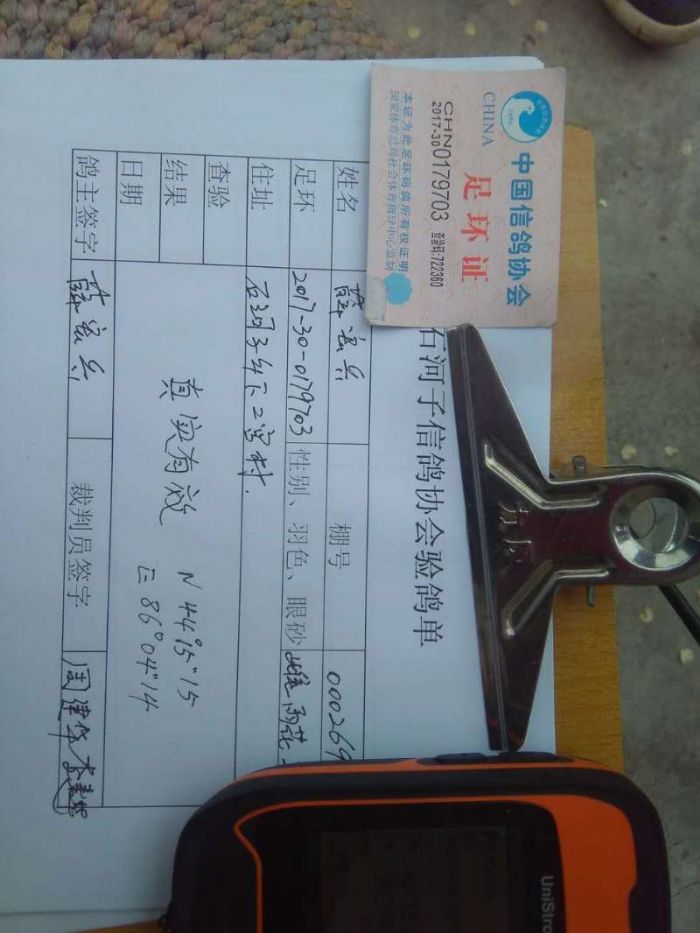 中国信鸽协会
足环证
CHINA
CHN
2017-30 0179703 查验码:722360
本证为此足环码鸽所有权证明
国家体育总局社会体育指导中心监制
石河子信鸽协会验鸽单
姓名 棚号 000269
足环 2017-30-0179703 性别、羽色、眼砂 雌 雨花
住址 石河子
查验
结果 真实有效 N 44°15"15
日期 E 86°04"14
鸽主签字 裁判员签字 周建华
UniStro